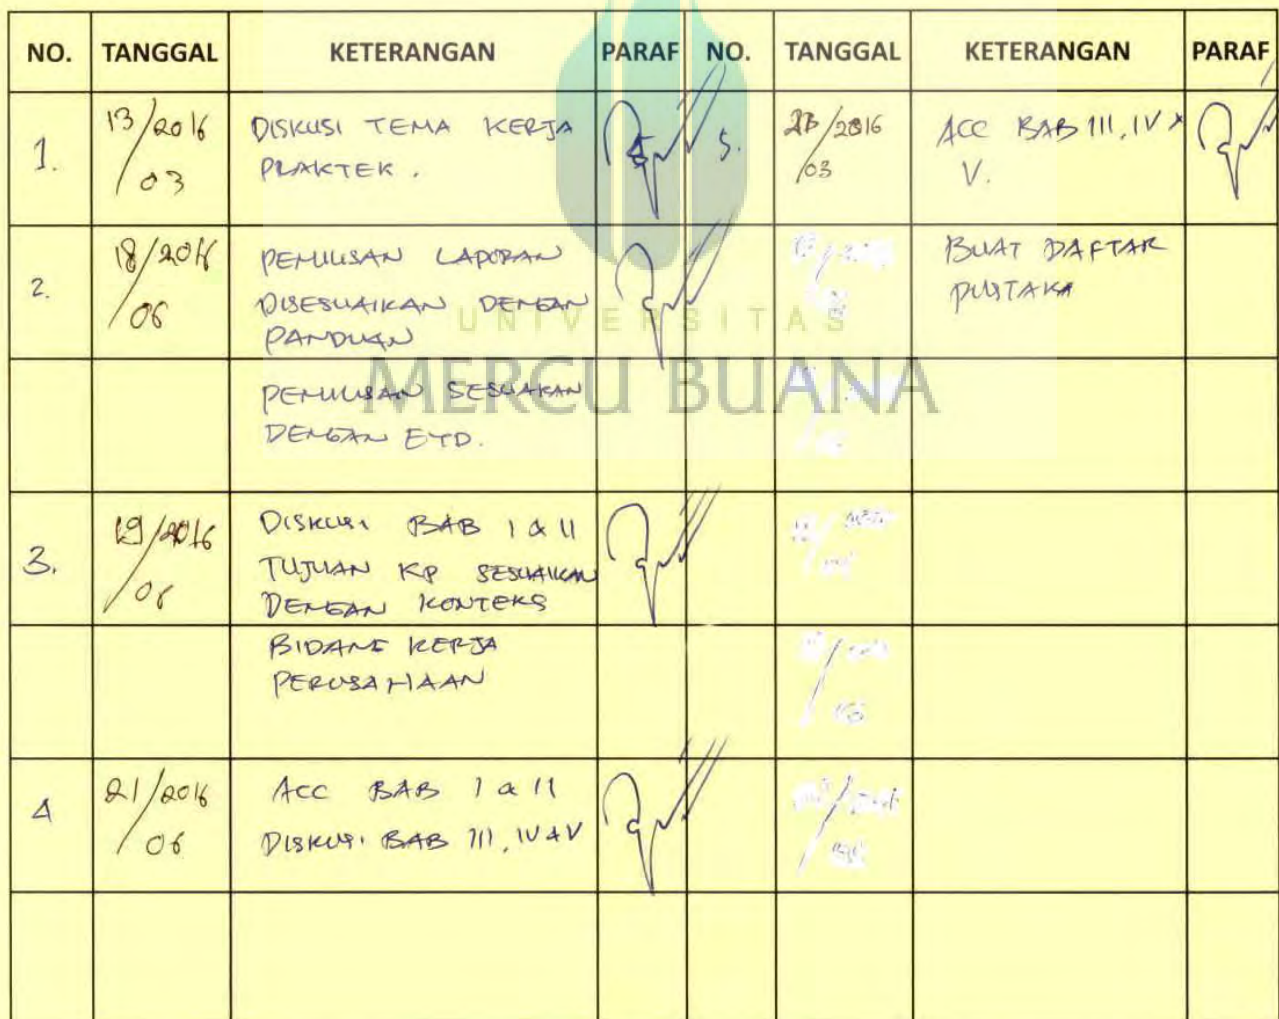 NO. TANGGAL KETERANGAN PARAF NO. TANGGAL KETERANGAN PARAF
1. 13/2016/03 DISKUSI TEMA KERJA
PRAKTEK.
5. /2016/03 ACC BAB III, IV &
V.
2. 18/2016/06 PENULISAN LAPORAN
DISESUAIKAN DENGAN
PANDUAN
BUAT DAFTAR
PUSTAKA
UNIVERSITAS
MERCU BUANA
PENULISAN SESUAIKAN
DENGAN ETD.
3. 19/2016/06 DISKUSI BAB I & II
TUJUAN KP SESUAIKAN
DENGAN KONTEKS
BIDANG KERJA
PERUSAHAAN
4 21/2016/06 ACC BAB I & II
DISKUSI BAB III, IV & V